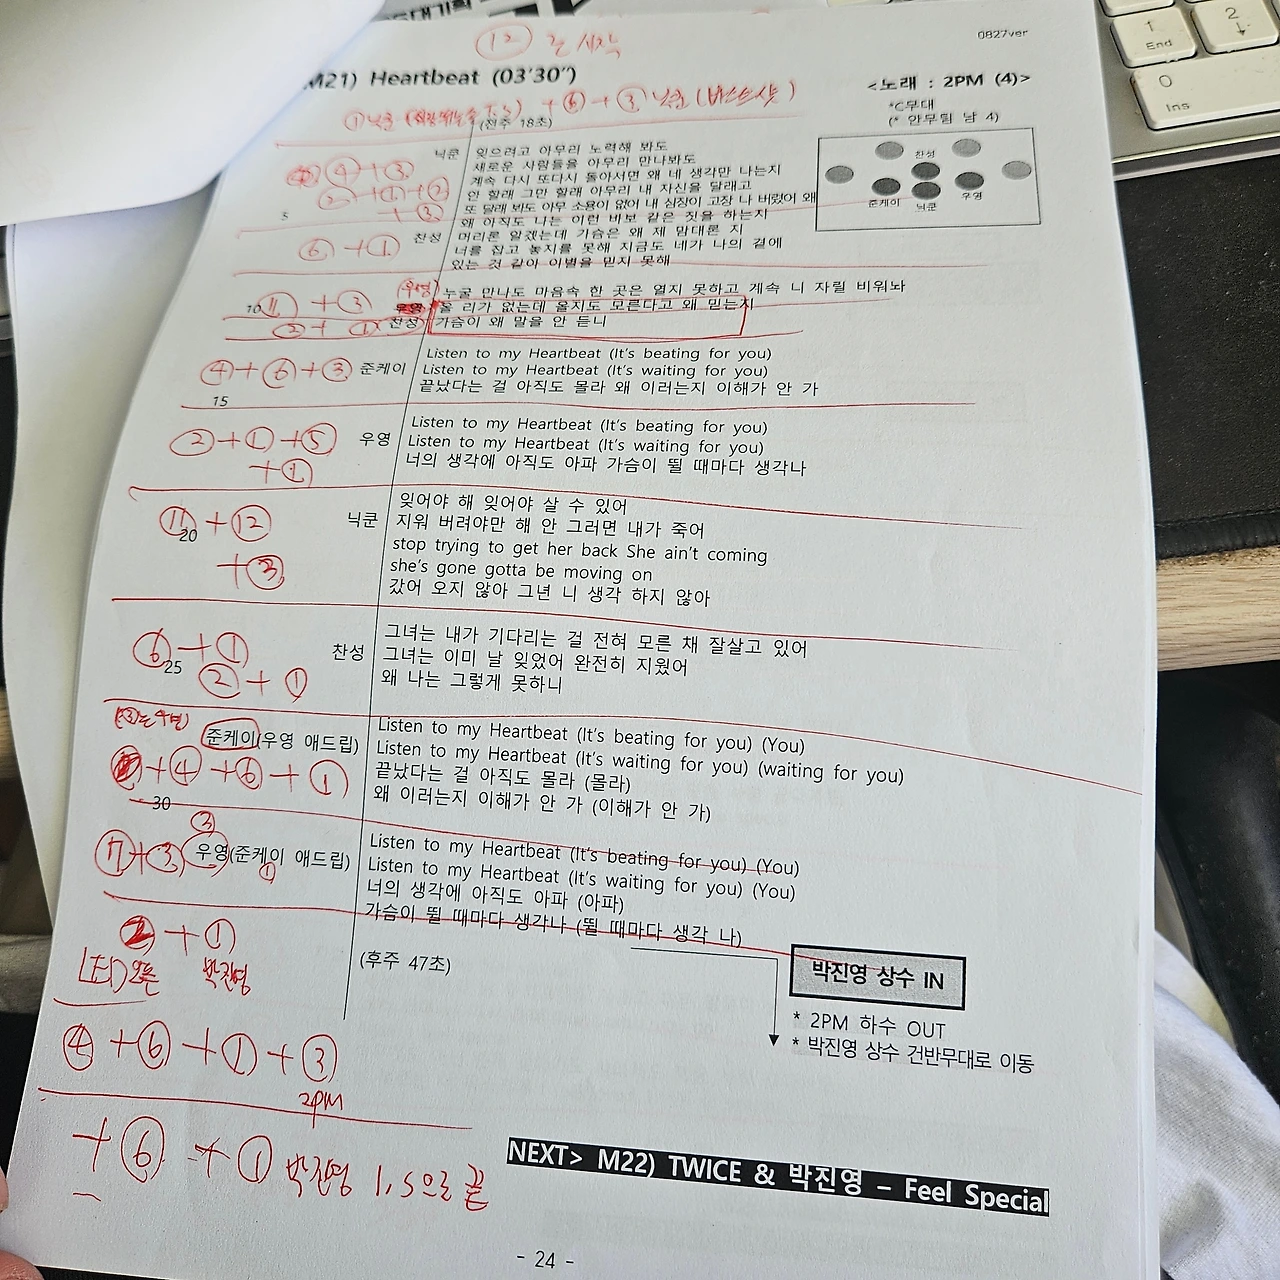 ⑫ 로 시작
0827ver
M21) Heartbeat (03'30")
<노래 : 2PM (4)>
*C무대
(* 안무팀 남 4)
① 닉쿤 + ⑥ + ③ 닉쿤 (바스트샷)
(전주 18초)
찬성
준케이 닉쿤 우영
④ + ③
② + ① + ②
+ ③
닉쿤
잊으려고 아무리 노력해 봐도
새로운 사람들을 아무리 만나봐도
계속 다시 또다시 돌아서면 왜 네 생각만 나는지
안 할래 그만 할래 아무리 내 자신을 달래고
5
또 달래 봐도 아무 소용이 없어 내 심장이 고장 나 버렸어 왜
왜 아직도 나는 이런 바보 같은 짓을 하는지
⑥ + ①
찬성
머리론 알겠는데 가슴은 왜 제 맘대론 지
너를 잡고 놓지를 못해 지금도 네가 나의 곁에
있는 것 같아 이별을 믿지 못해
10
⑪ + ③
우영
누굴 만나도 마음속 한 곳은 열지 못하고 계속 니 자릴 비워놔
우영
올 리가 없는데 올지도 모른다고 왜 믿는지
② + ①
찬성
가슴이 왜 말을 안 듣니
④ + ⑥ + ③
준케이
Listen to my Heartbeat (It's beating for you)
Listen to my Heartbeat (It's waiting for you)
끝났다는 걸 아직도 몰라 왜 이러는지 이해가 안 가
15
② + ① + ⑤
+ ①
우영
Listen to my Heartbeat (It's beating for you)
Listen to my Heartbeat (It's waiting for you)
너의 생각에 아직도 아파 가슴이 뛸 때마다 생각나
⑪ + ⑫
20
+ ③
닉쿤
잊어야 해 잊어야 살 수 있어
지워 버려야만 해 안 그러면 내가 죽어
stop trying to get her back She ain't coming
she's gone gotta be moving on
갔어 오지 않아 그년 니 생각 하지 않아
⑥ + ①
25
② + ①
찬성
그녀는 내가 기다리는 걸 전혀 모른 채 잘살고 있어
그녀는 이미 날 잊었어 완전히 지웠어
왜 나는 그렇게 못하니
준케이(우영 애드립)
+ ④ + ⑥ + ①
30
Listen to my Heartbeat (It's beating for you) (You)
Listen to my Heartbeat (It's waiting for you) (waiting for you)
끝났다는 걸 아직도 몰라 (몰라)
왜 이러는지 이해가 안 가 (이해가 안 가)
③
+ ③ 우영(준케이 애드립)
①
Listen to my Heartbeat (It's beating for you) (You)
Listen to my Heartbeat (It's waiting for you) (You)
너의 생각에 아직도 아파 (아파)
가슴이 뛸 때마다 생각나 (뛸 때마다 생각 나)
② + ①
박진영
(후주 47초)
박진영 상수 IN
* 2PM 하수 OUT
* 박진영 상수 건반무대로 이동
④ + ⑥ + ① + ③
2PM
+ ⑥ + ① 박진영 1,5으로 끝
NEXT> M22) TWICE & 박진영 – Feel Special
- 24 -